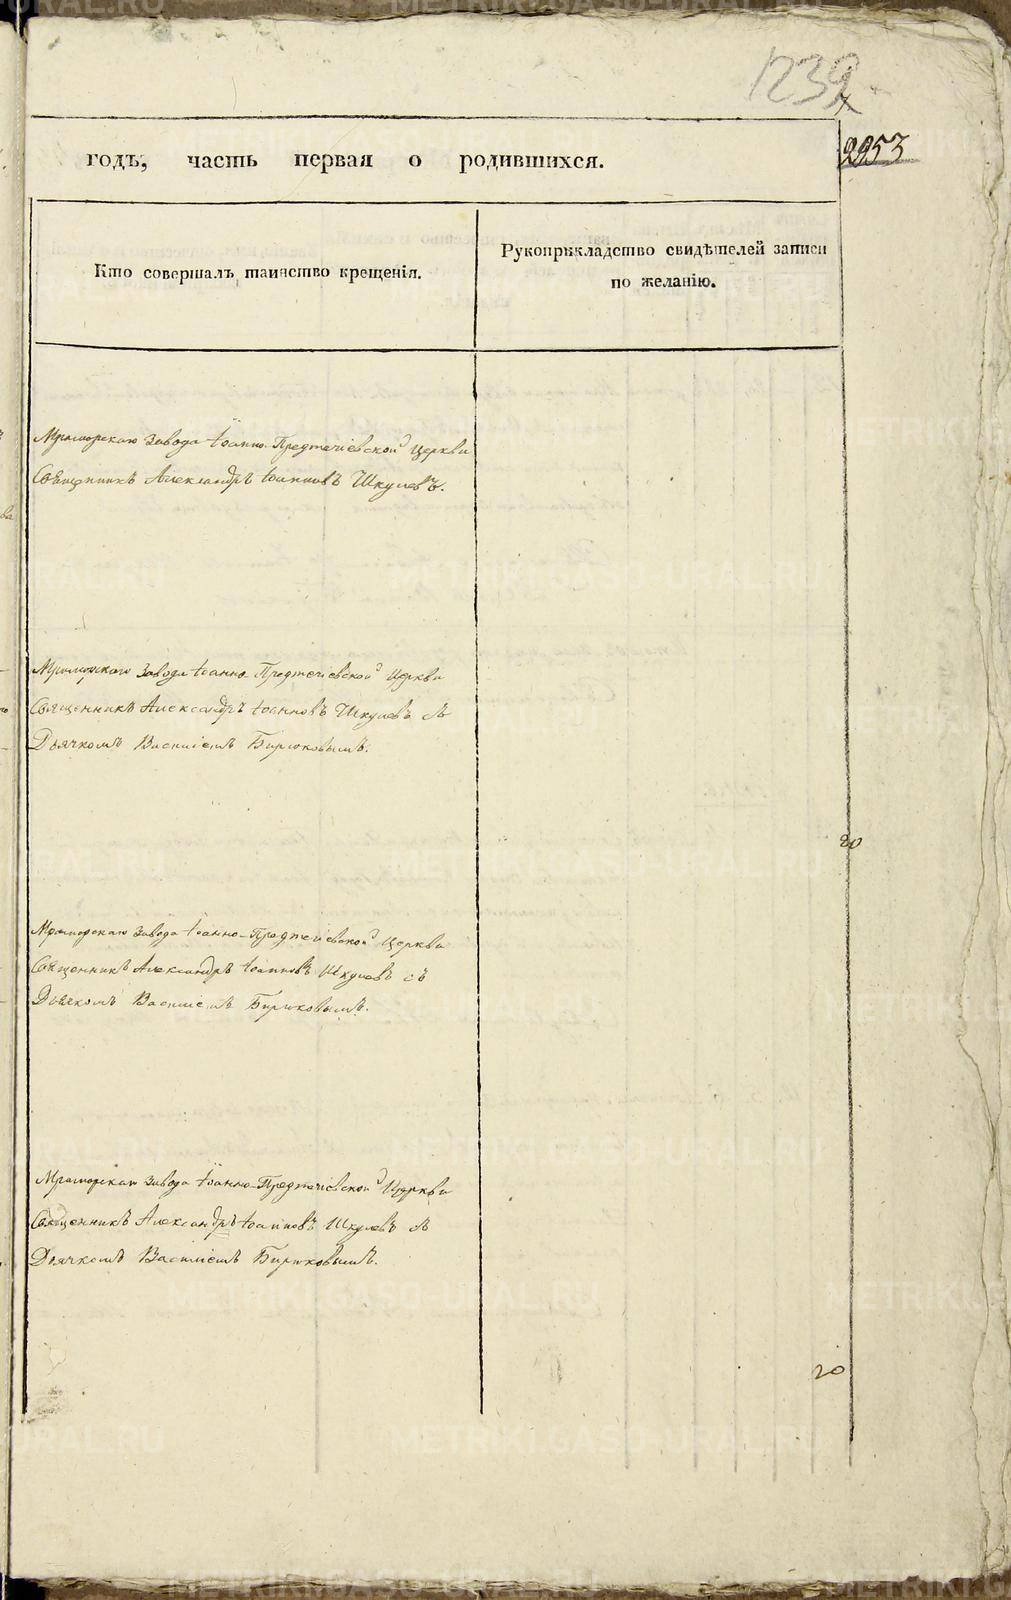 1239
2953
годъ, часть первая о родившихся.
Кто совершалъ таинство крещенія.
Рукоприкладство свидѣтелей записи
по желанію.
Мраморскаго Завода Іоанно-Предтечіевской Церкви
Священникъ Александръ Іоанновъ Шкулевъ.
Мраморскаго Завода Іоанно Предтечіевской Церкви
Священникъ Александръ Іоанновъ Шкулевъ съ
Дьячкомъ Василіемъ Бирюковымъ.
20
Мраморскаго Завода Іоанно-Предтечіевской Церкви
Священникъ Александръ Іоанновъ Шкулевъ съ
Дьячкомъ Василіемъ Бирюковымъ.
Мраморскаго Завода Іоанно-Предтечіевской Церкви
Священникъ Александръ Іоанновъ Шкулевъ съ
Дьячкомъ Василіемъ Бирюковымъ.
20
METRIKI.GASO-URAL.RU